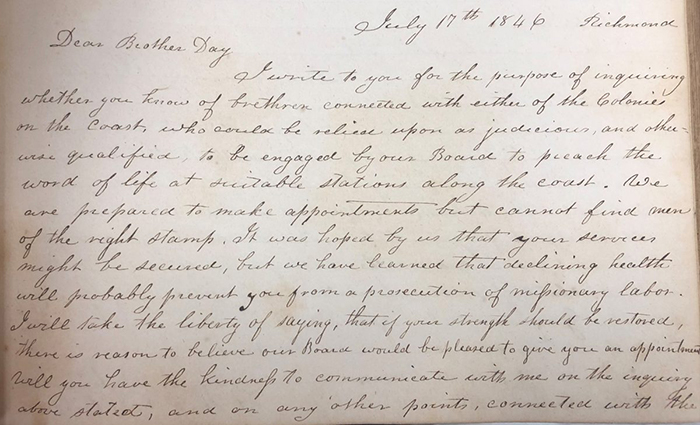 July 17th 1846 Richmond
Dear Brother Day
I write to you for the purpose of inquiring
whether you know of brethren connected with either of the Colonies
on the Coast, who could be relied upon as judicious, and other-
wise qualified, to be engaged by our Board to preach the
word of life at suitable stations along the coast. We
are prepared to make appointments but cannot find men
of the right stamp. It was hoped by us that your services
might be secured, but we have learned that declining health
will probably prevent you from a prosecution of missionary labor.
I will take the liberty of saying, that if your strength should be restored,
there is reason to believe our Board would be pleased to give you an appointment
Will you have the kindness to communicate with me on the inquiry
above stated, and on any other points, connected with the